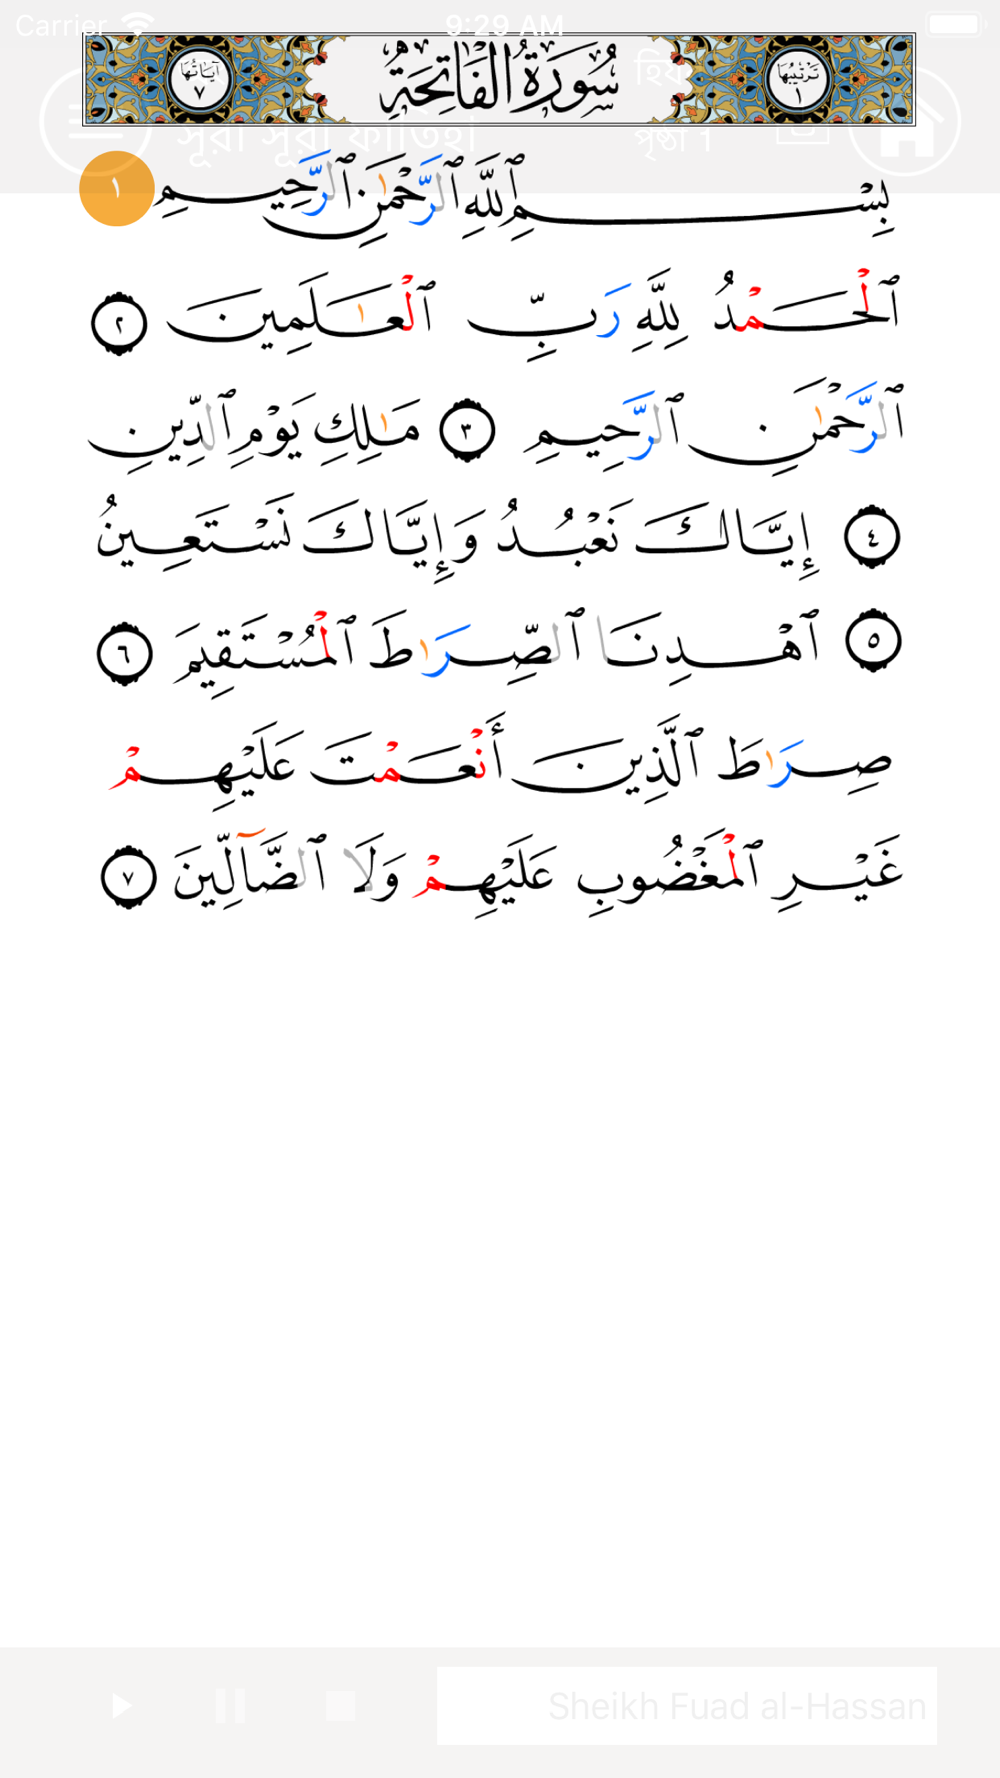 Carrier 9:29 AM
سُورَةُ الْفَاتِحَةِ
تَرْتِيبُهَا ١
آيَاتُهَا ٧
সূরা সূরা ফাতিহা
পৃষ্ঠা 1
بِسْمِ ٱللَّهِ ٱلرَّحْمَٰنِ ٱلرَّحِيمِ ١
ٱلْحَمْدُ لِلَّهِ رَبِّ ٱلْعَٰلَمِينَ ٢
ٱلرَّحْمَٰنِ ٱلرَّحِيمِ ٣ مَٰلِكِ يَوْمِ ٱلدِّينِ
٤ إِيَّاكَ نَعْبُدُ وَإِيَّاكَ نَسْتَعِينُ
٥ ٱهْدِنَا ٱلصِّرَٰطَ ٱلْمُسْتَقِيمَ ٦
صِرَٰطَ ٱلَّذِينَ أَنْعَمْتَ عَلَيْهِمْ
غَيْرِ ٱلْمَغْضُوبِ عَلَيْهِمْ وَلَا ٱلضَّآلِّينَ ٧
Sheikh Fuad al-Hassan